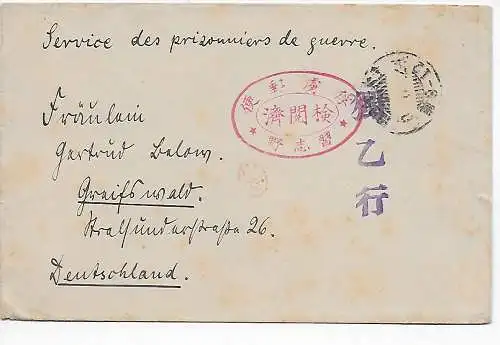 Service des prizonniers de guerre.
俘虜郵便
検閲済
習志野
獨乙行
Fräulein
Gertrud Below.
Greifswald.
Stralsunderstraße 26.
Deutschland.